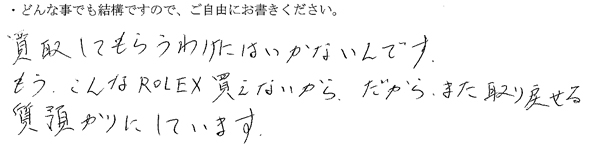 ・どんな事でも結構ですので、ご自由にお書きください。
買取してもらうわけにはいかないんです.
もう.こんなROLEX買えないから.だから.また取り戻せる
質預かりにしています.